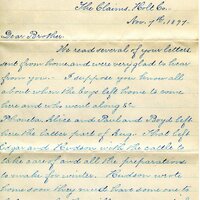 The Claims, Holt Co.
Nov. 7th, 1877.
Dear Brother.
We read several of your letters
sent from home and were very glad to hear
from you— I suppose you know all
about when the boys left home to come
here and who went along &c
Phoneta, Alice and Paul and Boyd left
here the latter part of Aug. That left
Edgar and Hudson with the cattle to
take care of and all the preparations
to make for winter. Hudson wrote
home soon they must have some one to